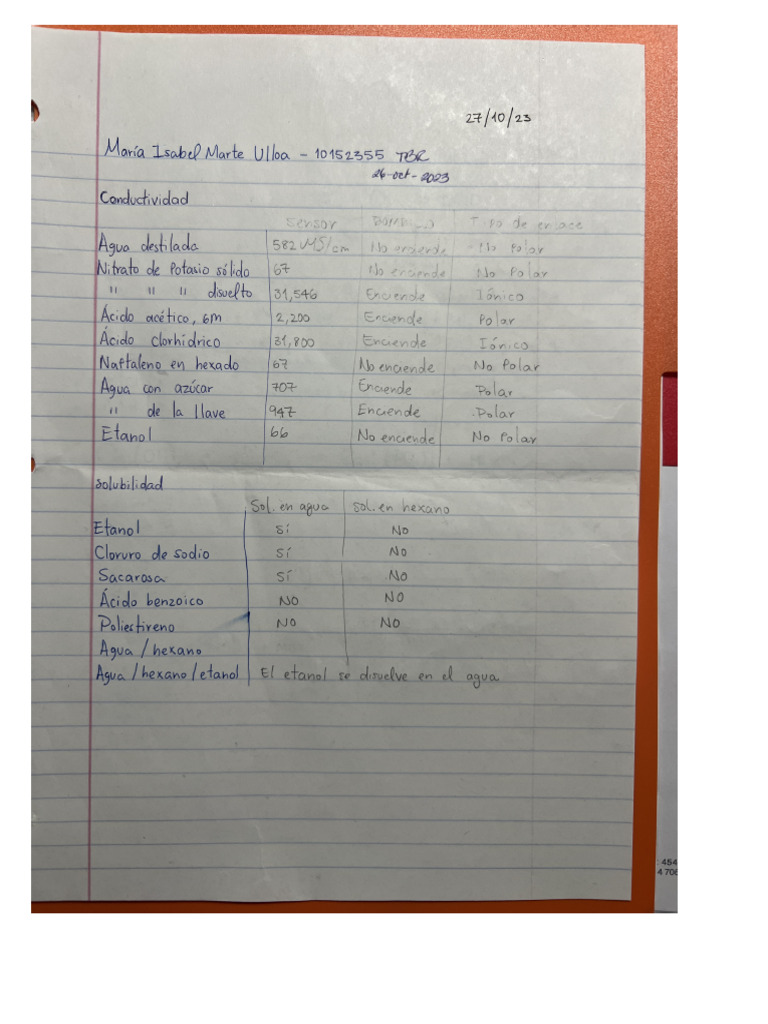 27/10/23
María Isabel Marte Ulloa - 10152355 TBR
26-oct-2023
Conductividad
Sensor Tipo de enlace
Agua destilada 582 MS/cm No enciende No Polar
Nitrato de Potasio sólido 67 No enciende No Polar
" " " disuelto 31,546 Enciende Iónico
Ácido acético, 6m 2,200 Enciende Polar
Ácido clorhídrico 31,800 Enciende Iónico
Naftaleno en hexado 67 No enciende No Polar
Agua con azúcar 707 Enciende Polar
" de la llave 947 Enciende Polar
Etanol 66 No enciende No Polar
Solubilidad
Sol. en agua Sol. en hexano
Etanol Sí No
Cloruro de sodio Sí No
Sacarosa Sí No
Ácido benzoico NO NO
Poliestireno NO NO
Agua / hexano
Agua / hexano / etanol El etanol se disuelve en el agua
454
4 706